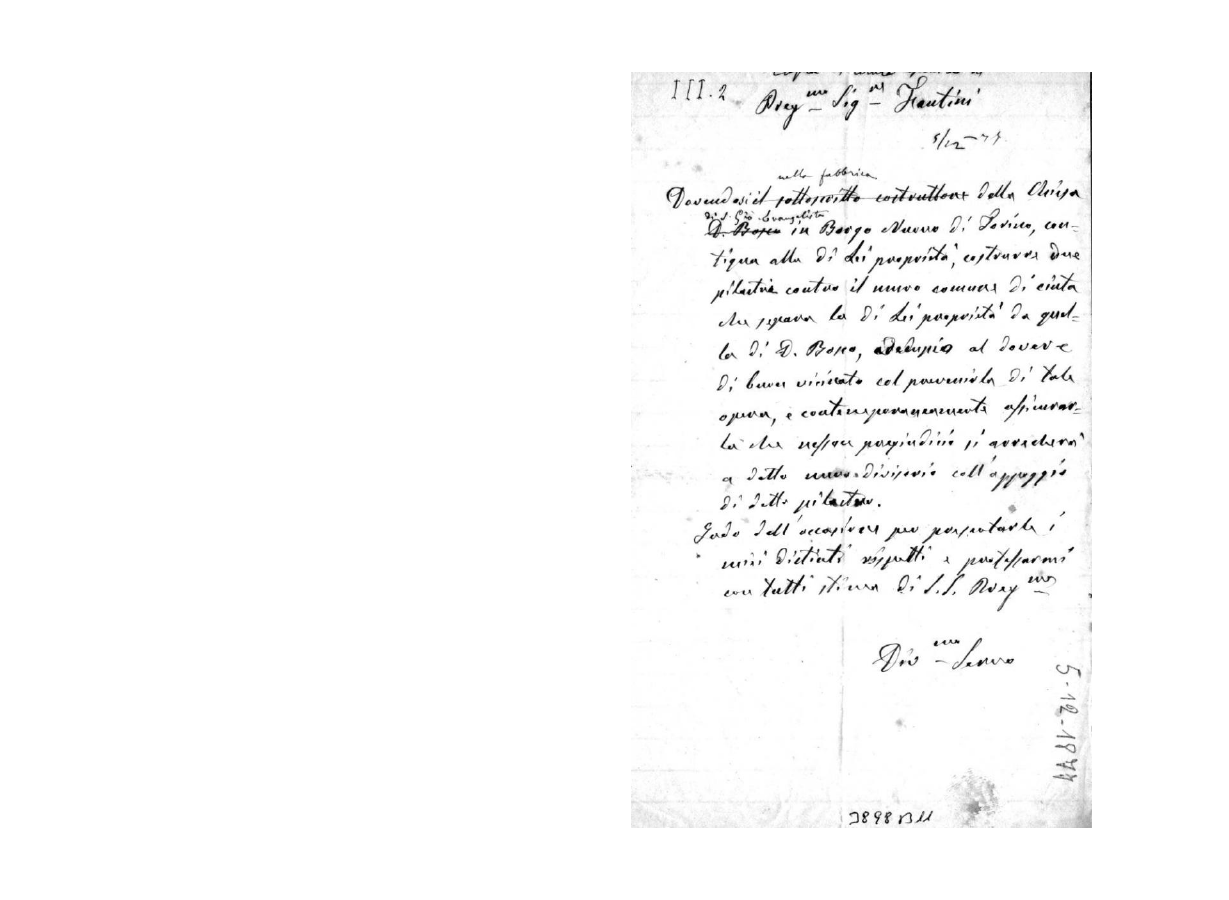 III. 2
Rvey mo Sig r Fantini
5/12 - 77
nella fabbrica
Dovendosi il sottoscritto costruttore della Chiesa
di S. Gio Evangelista
D. Bosco in Borgo Nuovo di Torino, con=
tigua alla di Lei proprietà, costrurre due
pilastri contro il muro comune di cinta
che separa la di Lei proprietà da quel=
la di D. Bosco, adempio al dovere
di buon vicinato col prevenirla di tale
opera, e contemporaneamente assicurar=
la che nessun pregiudizio si arrecherà
a detto muro divisorio coll'appoggio
di detti pilastri.
Godo dell'occasione per presentarle i
miei distinti rispetti e professarmi
con tutta stima di S. S. Rvey ma
Div mo Servo
5-12-1877
3898 B11